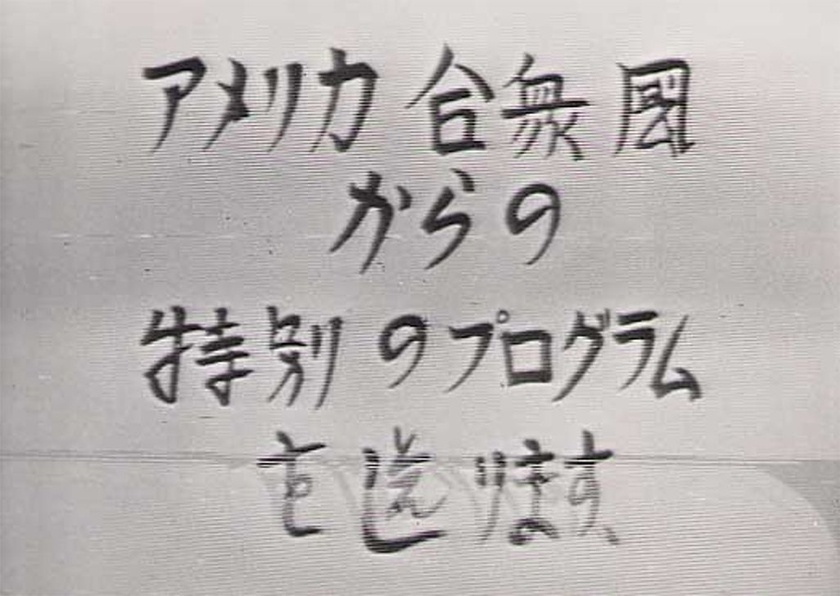 アメリカ合衆國
からの
特別のプログラム
を送ります、